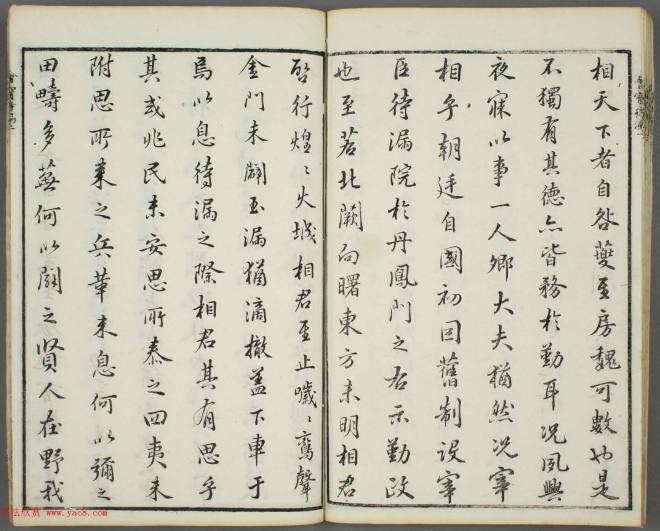 相天下者自咎夔至房魏可數也是
不獨有其德亦皆務於勤耳況夙興
夜寐以事一人卿大夫猶然況宰
相乎朝廷自國初因舊制設宰
臣待漏院於丹鳳門之右示勤政
也至若北闕向曙東方未明相君
啓行煌〻火城相君至止噦〻鸞聲
金門未闢玉漏猶滴撤蓋下車于
焉以息待漏之際相君其有思乎
其或兆民未安思所泰之四夷未
附思所来之兵革未息何以弭之
田疇多蕪何以闢之賢人在野我
www.yac8.com